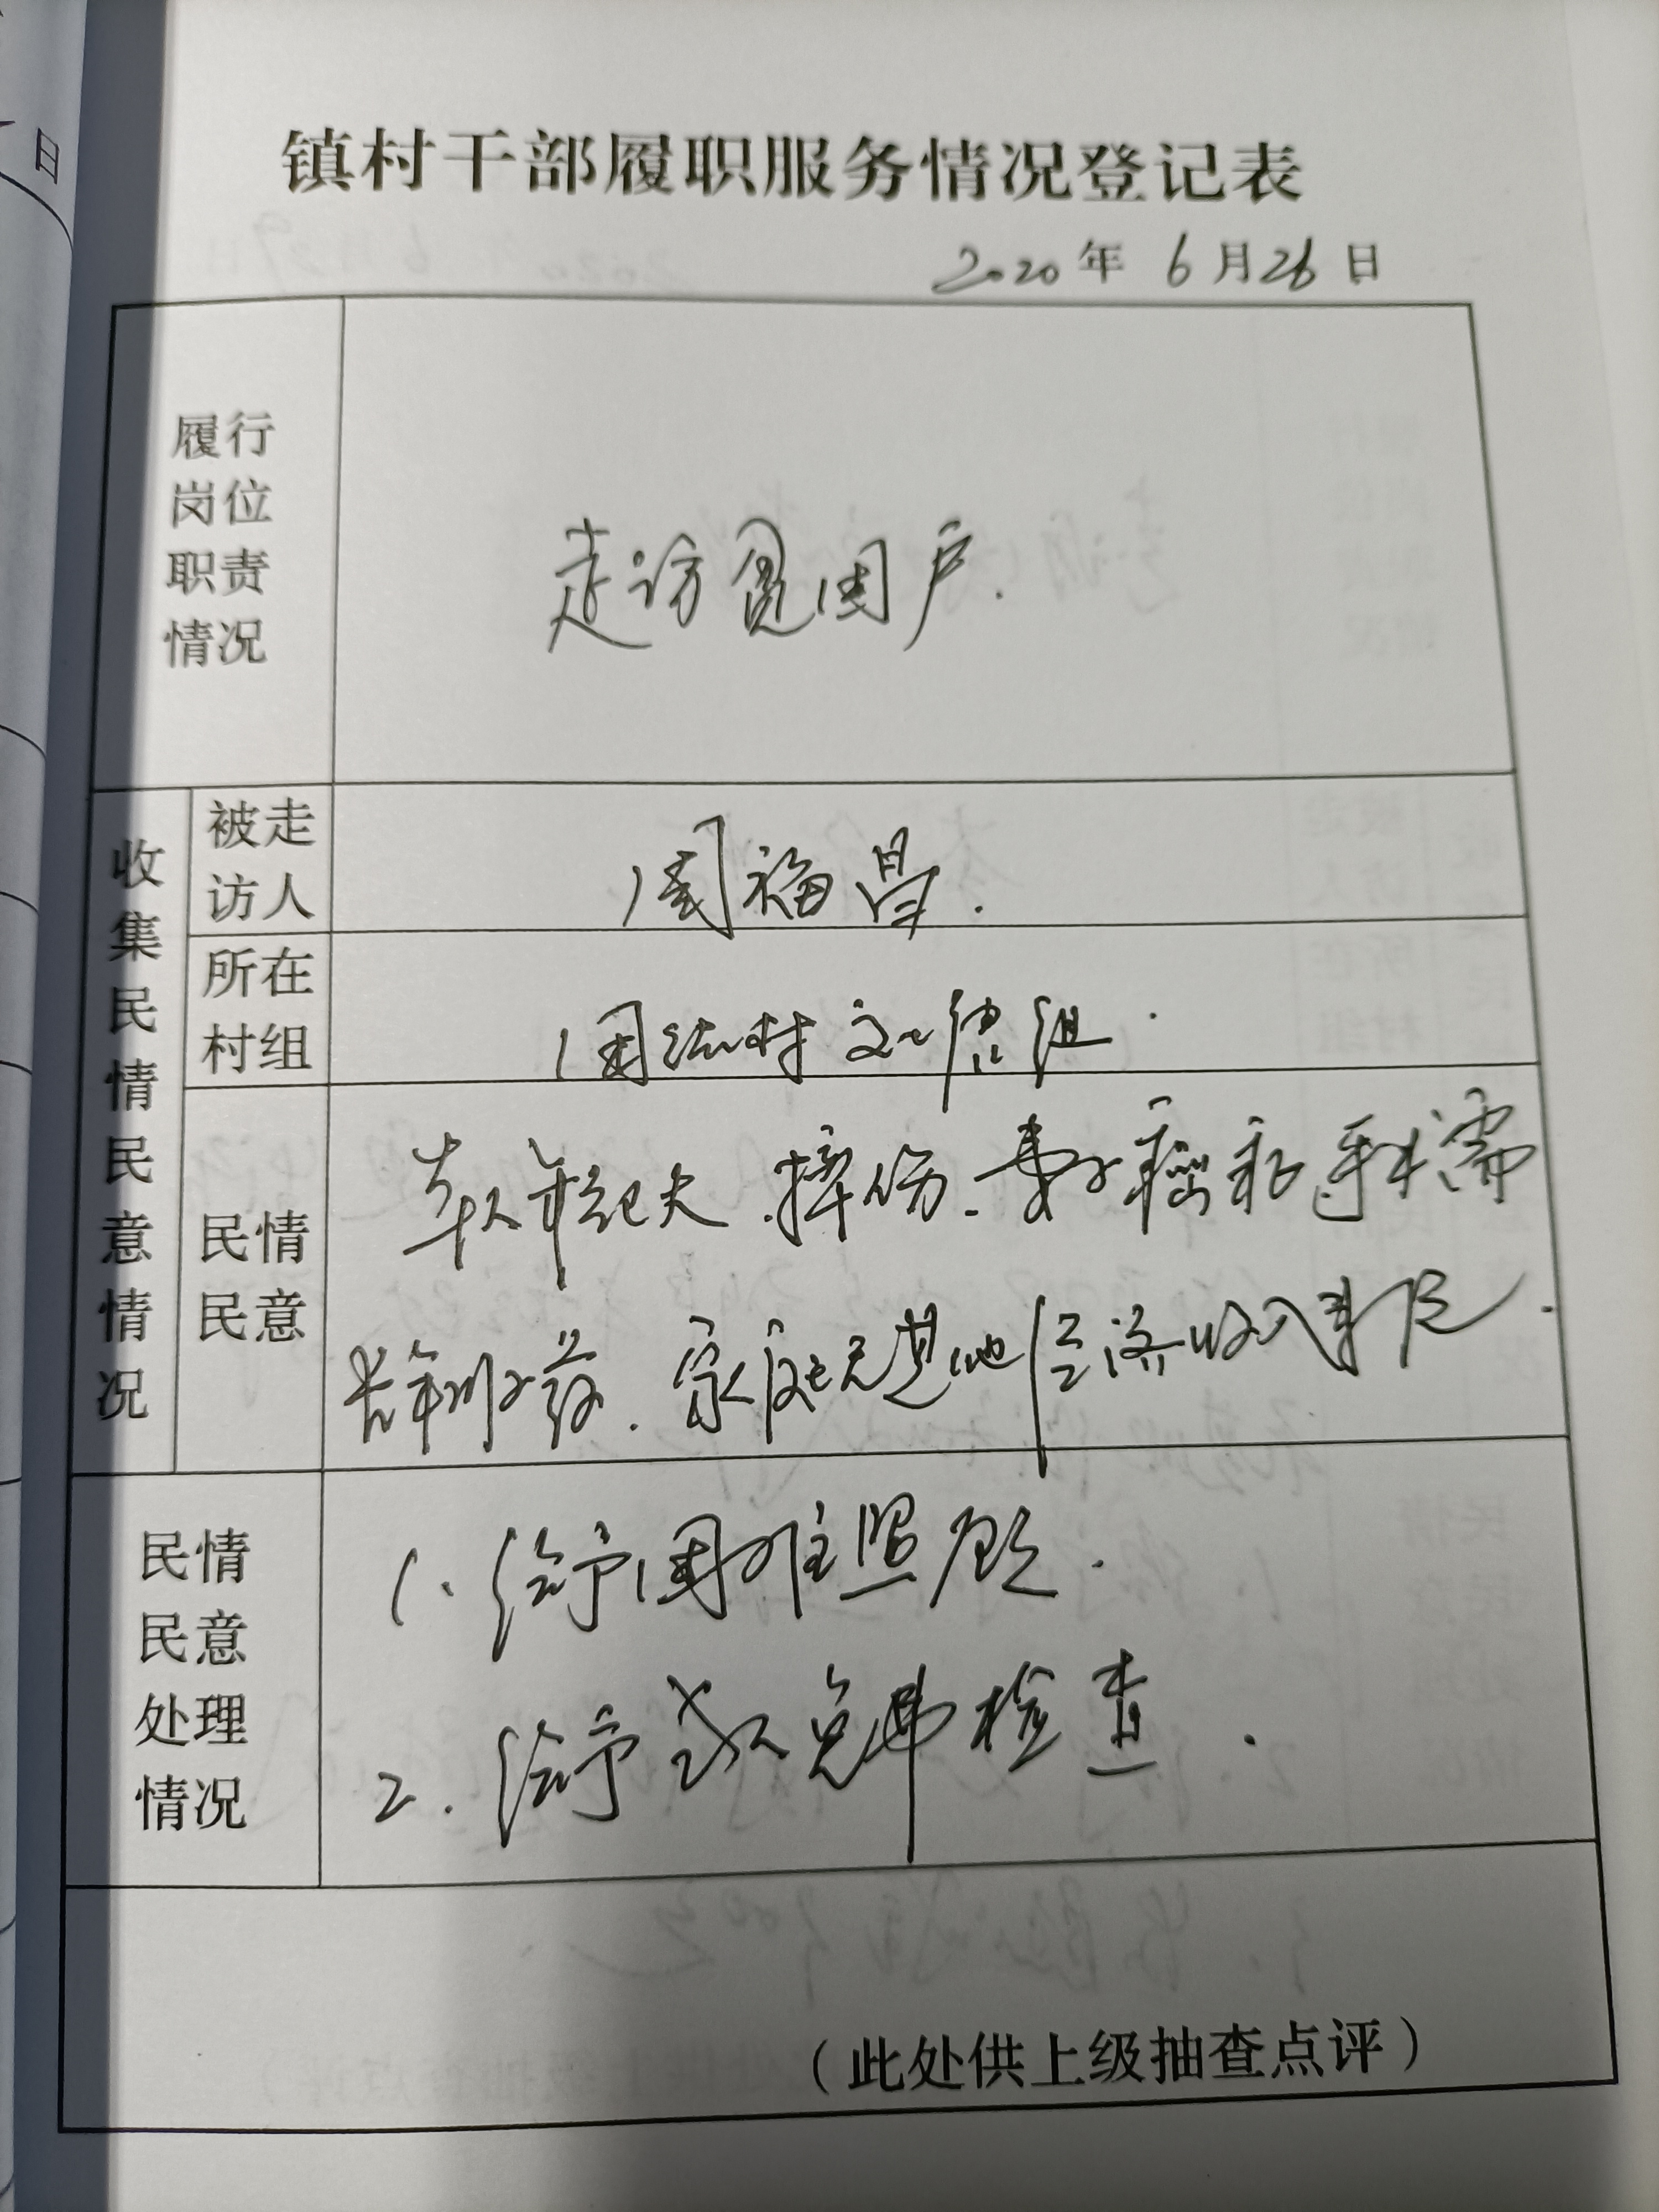 日
镇村干部履职服务情况登记表
2020年 6月26日
履行
岗位
职责
情况
走访贫困户.
收集民情民意情况
被走
访人
周福昌.
所在
村组
团结村
组.
民情
民意
年纪大.摔伤.妻子 手术需
长年 药.家庭无其他经济收入来源.
民情
民意
处理
情况
1.给予困难照顾.
2.给予 免费检查.
(此处供上级抽查点评)